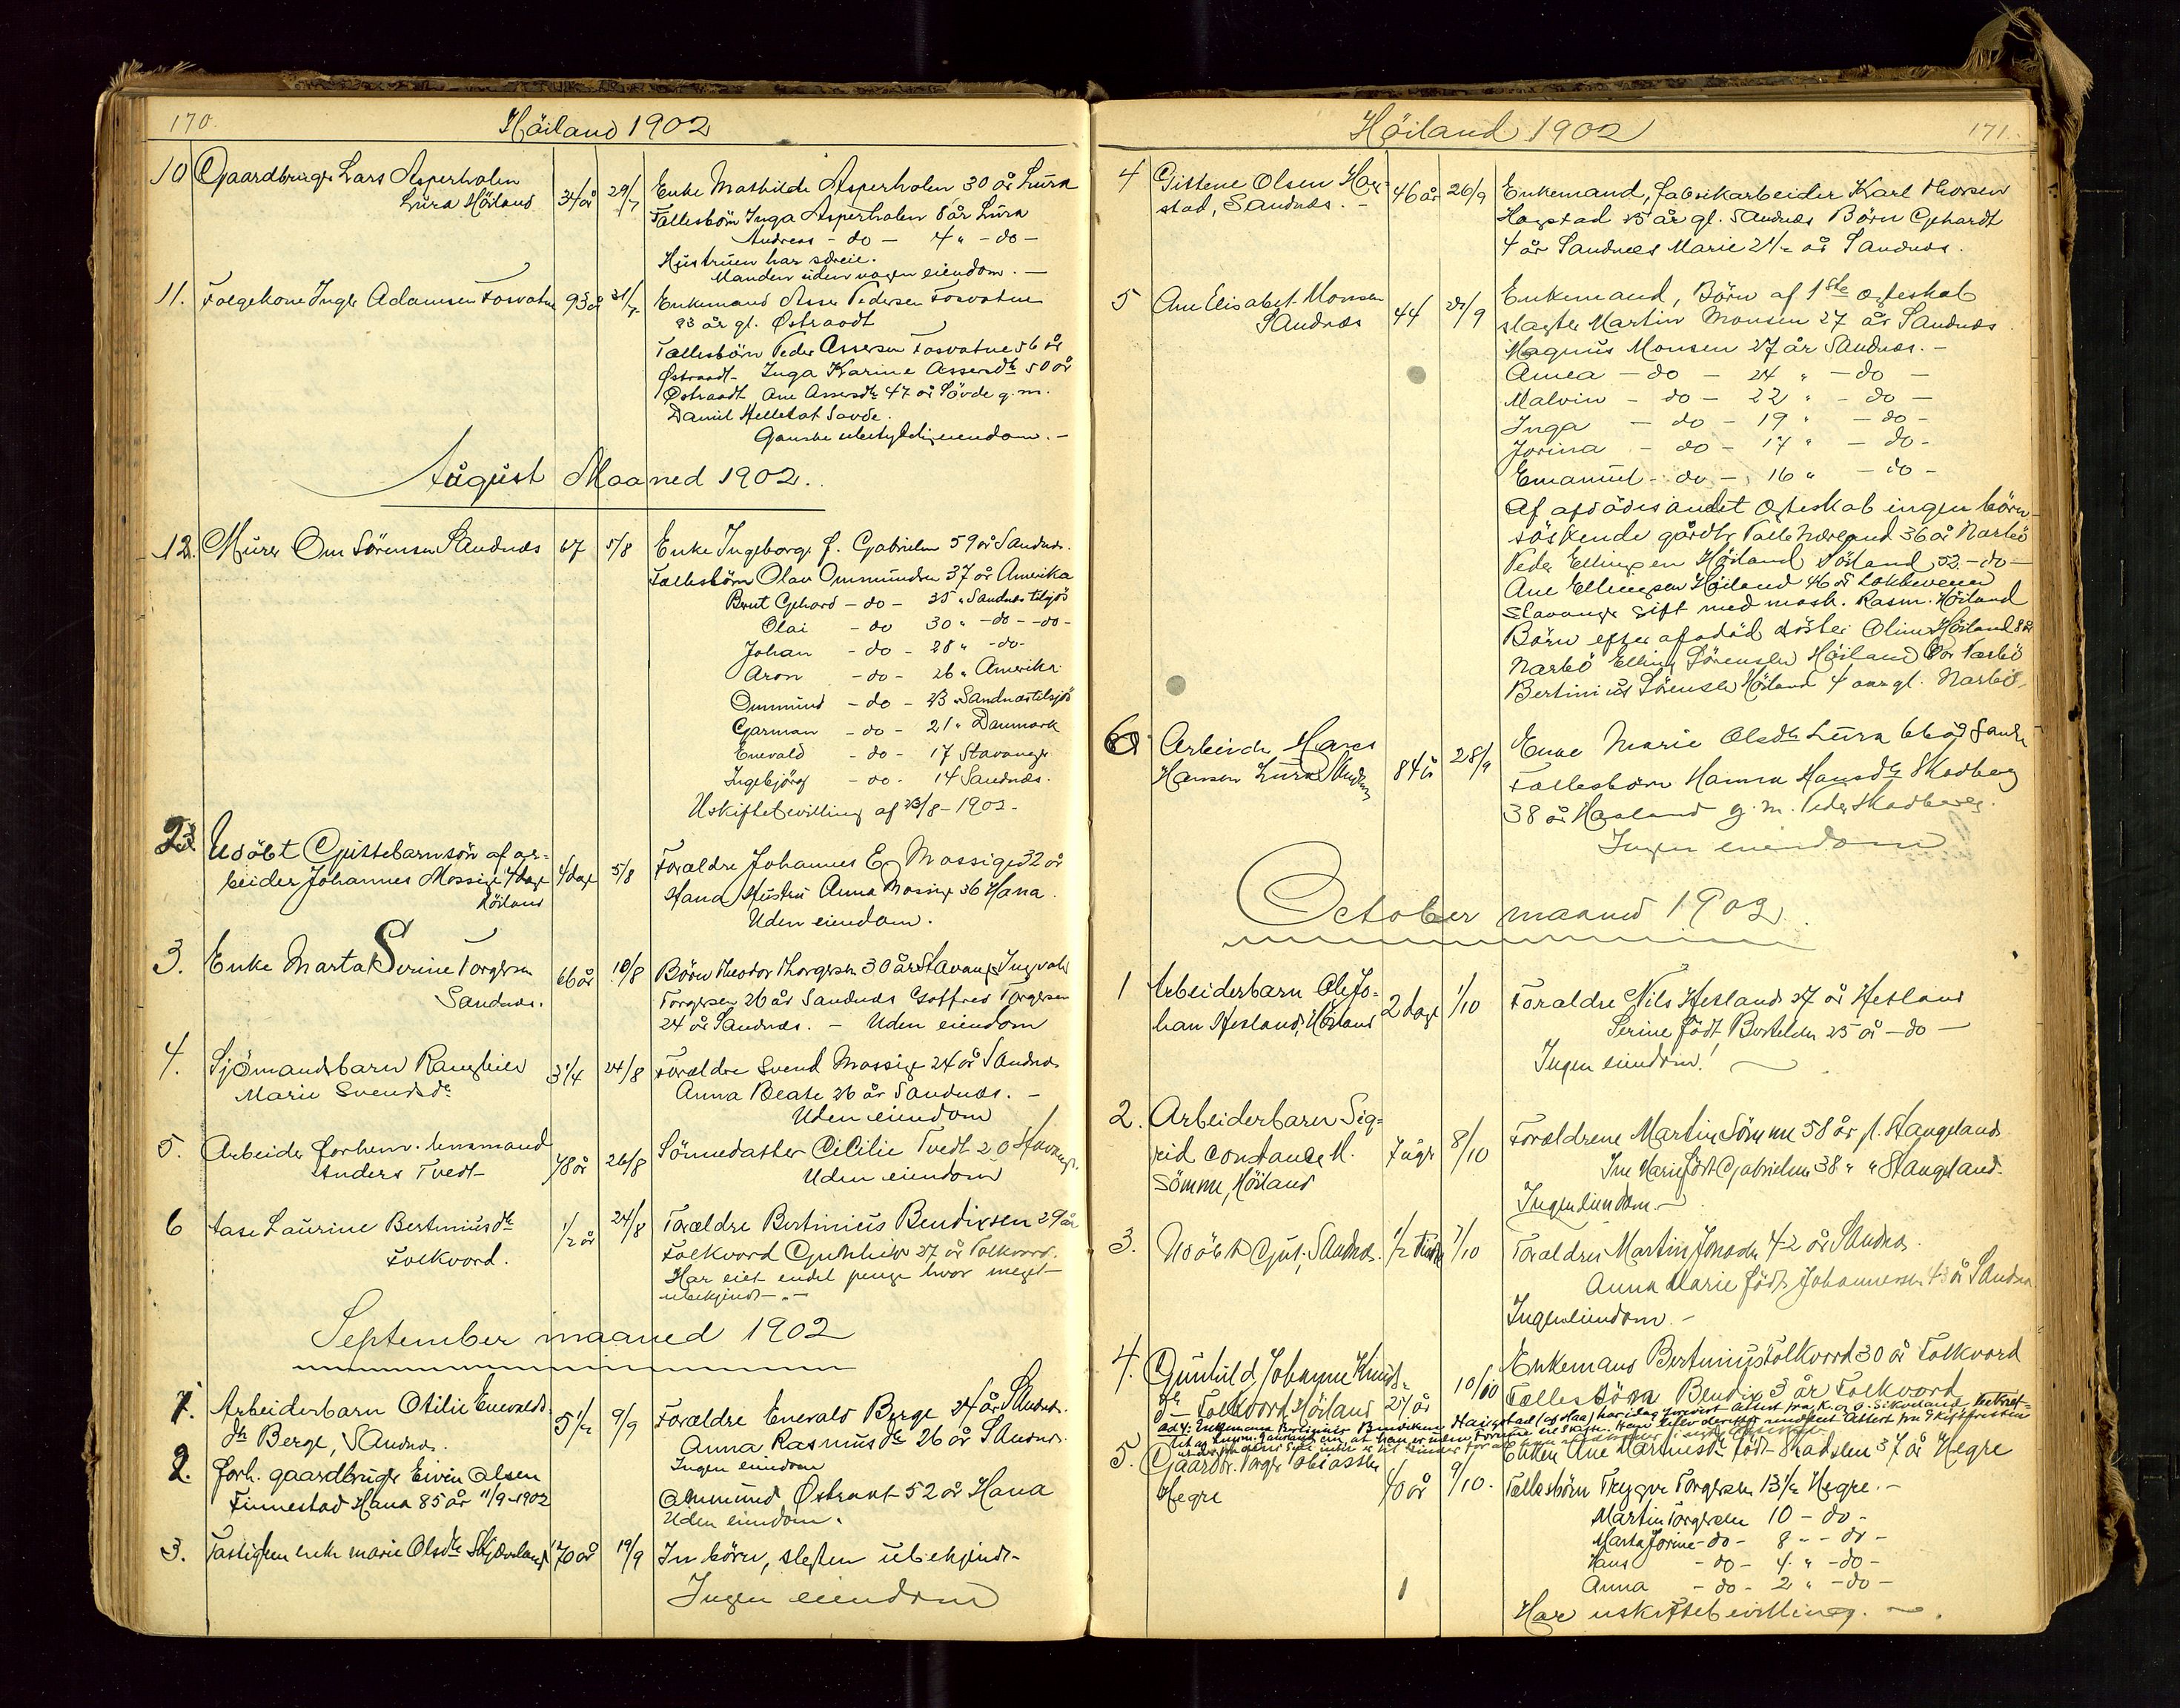 170.
Höiland 1902
10 Gaardbruger Lars Asperholen
Lura Höiland 34 år 29/7
Enke Mathilde Asperholen 30 år Lura
Fællesbörn Inga Asperholen 8 år Lura
Andreas - do - 4 " - do -
Hustruen har særeie.
Manden uden nogen eiendom. -
11. Folgekone Inger Adamsen Fosvatne 93 år 31/7
Enkemand Asser Pedersen Fosvatne
93 år gl. Østraadt
Fællesbörn Peder Assersen Fosvatne 56 år
Østraadt - Inga Karine Assersdtr 50 år
Østraadt Ane Assersdtr 47 år Sövde g. m.
Daniel Helleland Sovde.
Ganske ubetydelig eiendom. -
August Maaned 1902.
12. Murer Om Sörensen Sandnæs 67 5/8
Enke Ingeborg f. Gabrielsen 59 år Sandnæs.
Fællesbörn Olav Ommundsen 37 år Amerika
Bernt Gehard - do - 35 " Sandnæs tilsjös
Olai - do 30 " - do - - do -
Johan - do - 28 " - do -
Aron - do - 26 " Amerika
Ommund - do - 23 " Sandnæs tilsjös
Garman - do - 21 " Danmark
Enevald - do - 17 Stavanger
Ingebjörg - do - 14 Sandnæs.
Uskiftebevilling af 23/8 - 1902 -
2. Udöbt Gjittebarn sön af ar=
beider Johannes Mossige 4 dage
Höiland 4 dage 5/8
Forældre Johannes E. Mossige 32 år
Hana Hustru Anna Mossige 36 Hana.
Uden eiendom.
3. Enke Marta Serine Torgersen
Sandnæs. 66 år 18/8
Börn Theodor Thorgersen 30 år Stavanger Ingvald
Torgersen 26 år Sandnæs Gotfred Torgersen
24 år Sandnæs. - Uden eiendom
4. Sjömandsbarn Rangheid
Marie Svendsdtr 3 1/4 24/8
Forældre Svend Mossige 24 år Sandnæs
Anna Beate 26 år Sandnæs. -
Uden eiendom
5. Arbeider forhenv. husmand
Anders Tvedt 78 år 26/8
Sönnedatter Cecilie Tvedt 20 Stavanger.
Uden eiendom
6 Aase Laurine Bertiniusdtr
Folkvord. 1/2 år 24/8
Forældre Bertinius Bendixsen 29 år
Folkvord Gunhild 27 år Folkvord.
Har eiet endel penge hvor meget
ubekjendt - " -
September maaned 1902
1. Arbeiderbarn Otilie Enevalds
dtr Berge, Sandnæs. 5 1/2 9/9
Forældre Enevald Berge 24 år Sandnæs.
Anna Rasmusdtr 26 år Sandnæs.
Ingen eiendom
2. Forh. gaardbruger Eivin Olsen
Finnestad Hana 85 år 11/9 - 1902
Ommund Østraat 52 år Hana
Uden eiendom.
3. Fattiglem enke Marie Olsdtr Skjæveland 70 år 19/9
In börn, slegten ubekjendt -
Ingen eiendom
Höiland 1902
171.
4 Gittene Olsen Hog-
stad, Sandnæs. - 46 år 26/9
Enkemand, fabrikarbeider Karl Thorsen
Hogstad 25 år gl. Sandnæs Börn Gehardt
4 år Sandnæs Marie 2 1/2 år Sandnæs.
5 Ane Elisabet Monsen
Sandnæs 44 27/9
Enkemand, Börn af 1ste ægteskab
slagter Martin Monsen 27 år Sandnæs
Magnus Monsen 27 år Sandnæs. -
Amea - do - 24 " - do -
Malvin - do - 22 " - do -
Inga - do - 19 " - do -
Jorina - do - 17 " - do -
Emanuel - do - 16 " - do -
Af afdödes andet ægteskab ingen börn -
söskende gårdbr Palle Næreland 36 år Nærbö
Peder Ellingsen Höiland Höiland 52 - do -
Ane Ellingsen Höiland 46 år Lokkeveien
Stavanger gift med mask. Rasm. Höiland
Börn efter afdöd söster Oline Höiland 8 år
Nærbö Elling Sörensen Höiland 6 år Nærbö
Bertinius Sörensen Höiland 4 aar gl. Nærbö.
6 Arbeider Hans
Hansen Lura Sandnæs 84 år 28/9
Enke Marie Olsdtr Lura 66 år Sandn
Fællesbörn Hanna Hansdtr Skadberg
38 år Haaland g. m. Peder Skadberg.
Ingen eiendom
October maaned 1902.
1 Arbeiderbarn Ole Jo-
han Hesland, Höiland 2 dage 1/10
Forældre Nils Hesland 27 år Hesland
Serine Födt Bertelsen 25 år - do -
Ingen eiendom!
2. Arbeiderbarn Sig=
rid Constance M.
Sömme, Höiland 7 uger 8/10
Forældrene Martin Sömme 58 år f. Stangeland
Ine Marie födt Gabrielsen 38 " " Stangeland.
Ingen eiendom. -
3. Udöbt Gut, Sandnæs. 1/2 time 7/10
Forældre Martin Jonassen 42 år Sandnæs.
Anna Marie födt Johannessen 43 år Sandnæs
Ingen eiendom. -
4. Gunhild Johanne Knuds-
dtr Folkvord Höiland 27 år 10/10
Enkemand Bertinius Folkvord 30 år Folkvord
Fællesbörn Bendix 3 år Folkvord
ad 4: Enkemand Bertinius Bendiksen
5. Gaardbr. Torger Tobiassen
Hegre 40 år 9/10.
Enken Ane Martinesdtr födt Skadsem 37 år Hegre
Fællesbörn Trygve Torgersen 13 1/2 Hegre. -
Martin Torgersen 10 - do -
Marta Jorine - do - 8 - - do -
Hans - do - 4 " - do -
Anna - do - 2 " - do -
Har uskiftebevilling.